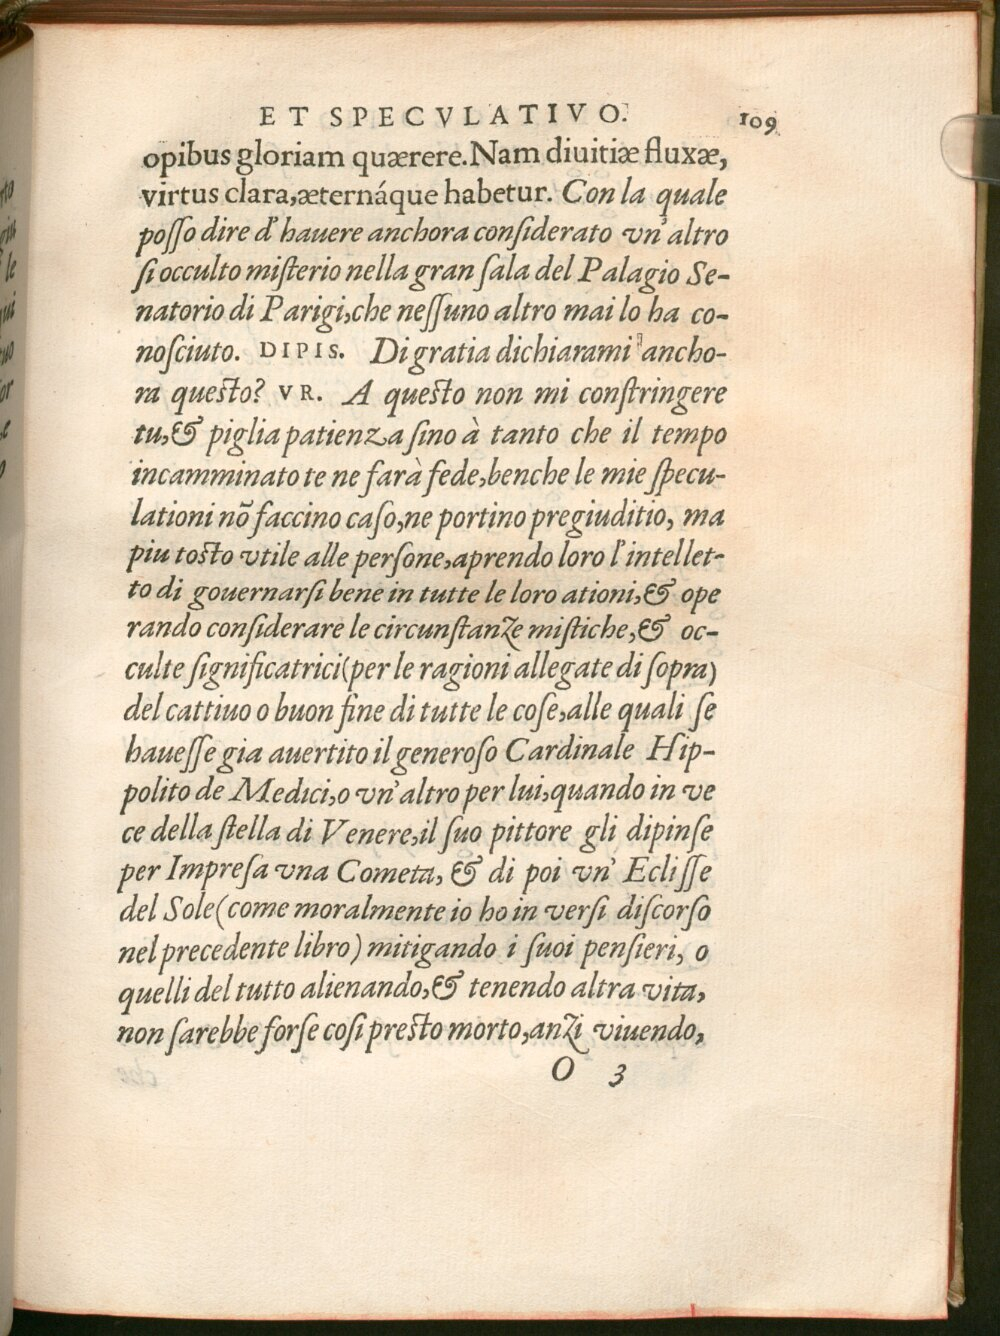 ET SPECVLATIVO. 109
opibus gloriam quærere. Nam diuitiæ fluxæ,
virtus clara, æternáque habetur. Con la quale
poſſo dire d'hauere anchora conſiderato vn'altro
ſi occulto miſterio nella gran ſala del Palagio Se-
natorio di Parigi, che neſſuno altro mai lo ha co-
noſciuto. DIPIS. Di gratia dichiarami ancho-
ra queſto? VR. A queſto non mi conſtringere
tu, & piglia patienza ſino à tanto che il tempo
incamminato te ne farà fede, benche le mie ſpecu-
lationi nõ faccino caſo, ne portino pregiuditio, ma
piu toſto vtile alle perſone, aprendo loro l'intellet-
to di gouernarſi bene in tutte le loro ationi, & ope
rando conſiderare le circunſtanze miſtiche, & oc-
culte ſignificatrici (per le ragioni allegate di ſopra)
del cattiuo o buon fine di tutte le coſe, alle quali ſe
haueſſe gia auertito il generoſo Cardinale Hip-
polito de Medici, o vn'altro per lui, quando in ve
ce della ſtella di Venere, il ſuo pittore gli dipinſe
per Impreſa vna Cometa, & di poi vn' Ecliſſe
del Sole (come moralmente io ho in verſi diſcorſo
nel precedente libro) mitigando i ſuoi penſieri, o
quelli del tutto alienando, & tenendo altra vita,
non ſarebbe forſe coſi preſto morto, anzi viuendo,
O 3